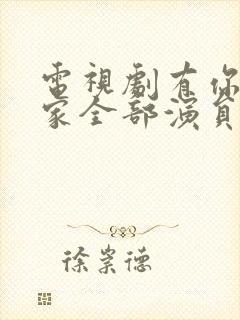 電視劇有你
家全部演員
徐崇德